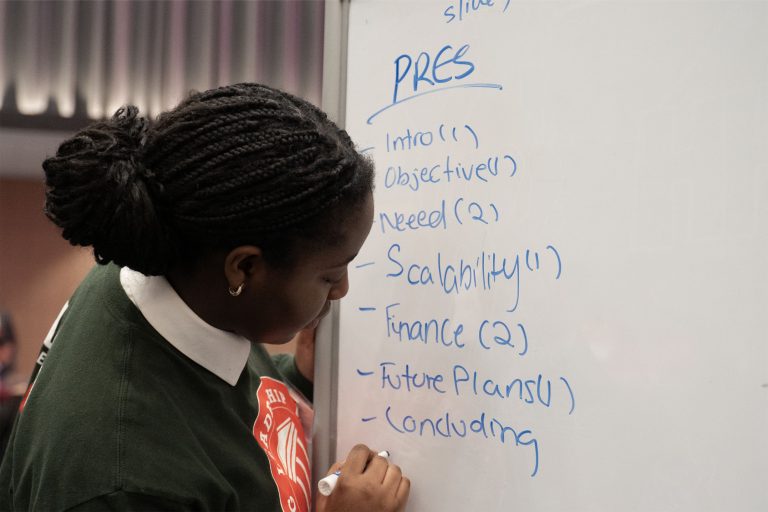 slide)
PRES
- Intro(1)
Objective(1)
- Neeed(2)
- Scalability(1)
- Finance (2)
- Future Plans(1)
- Concluding